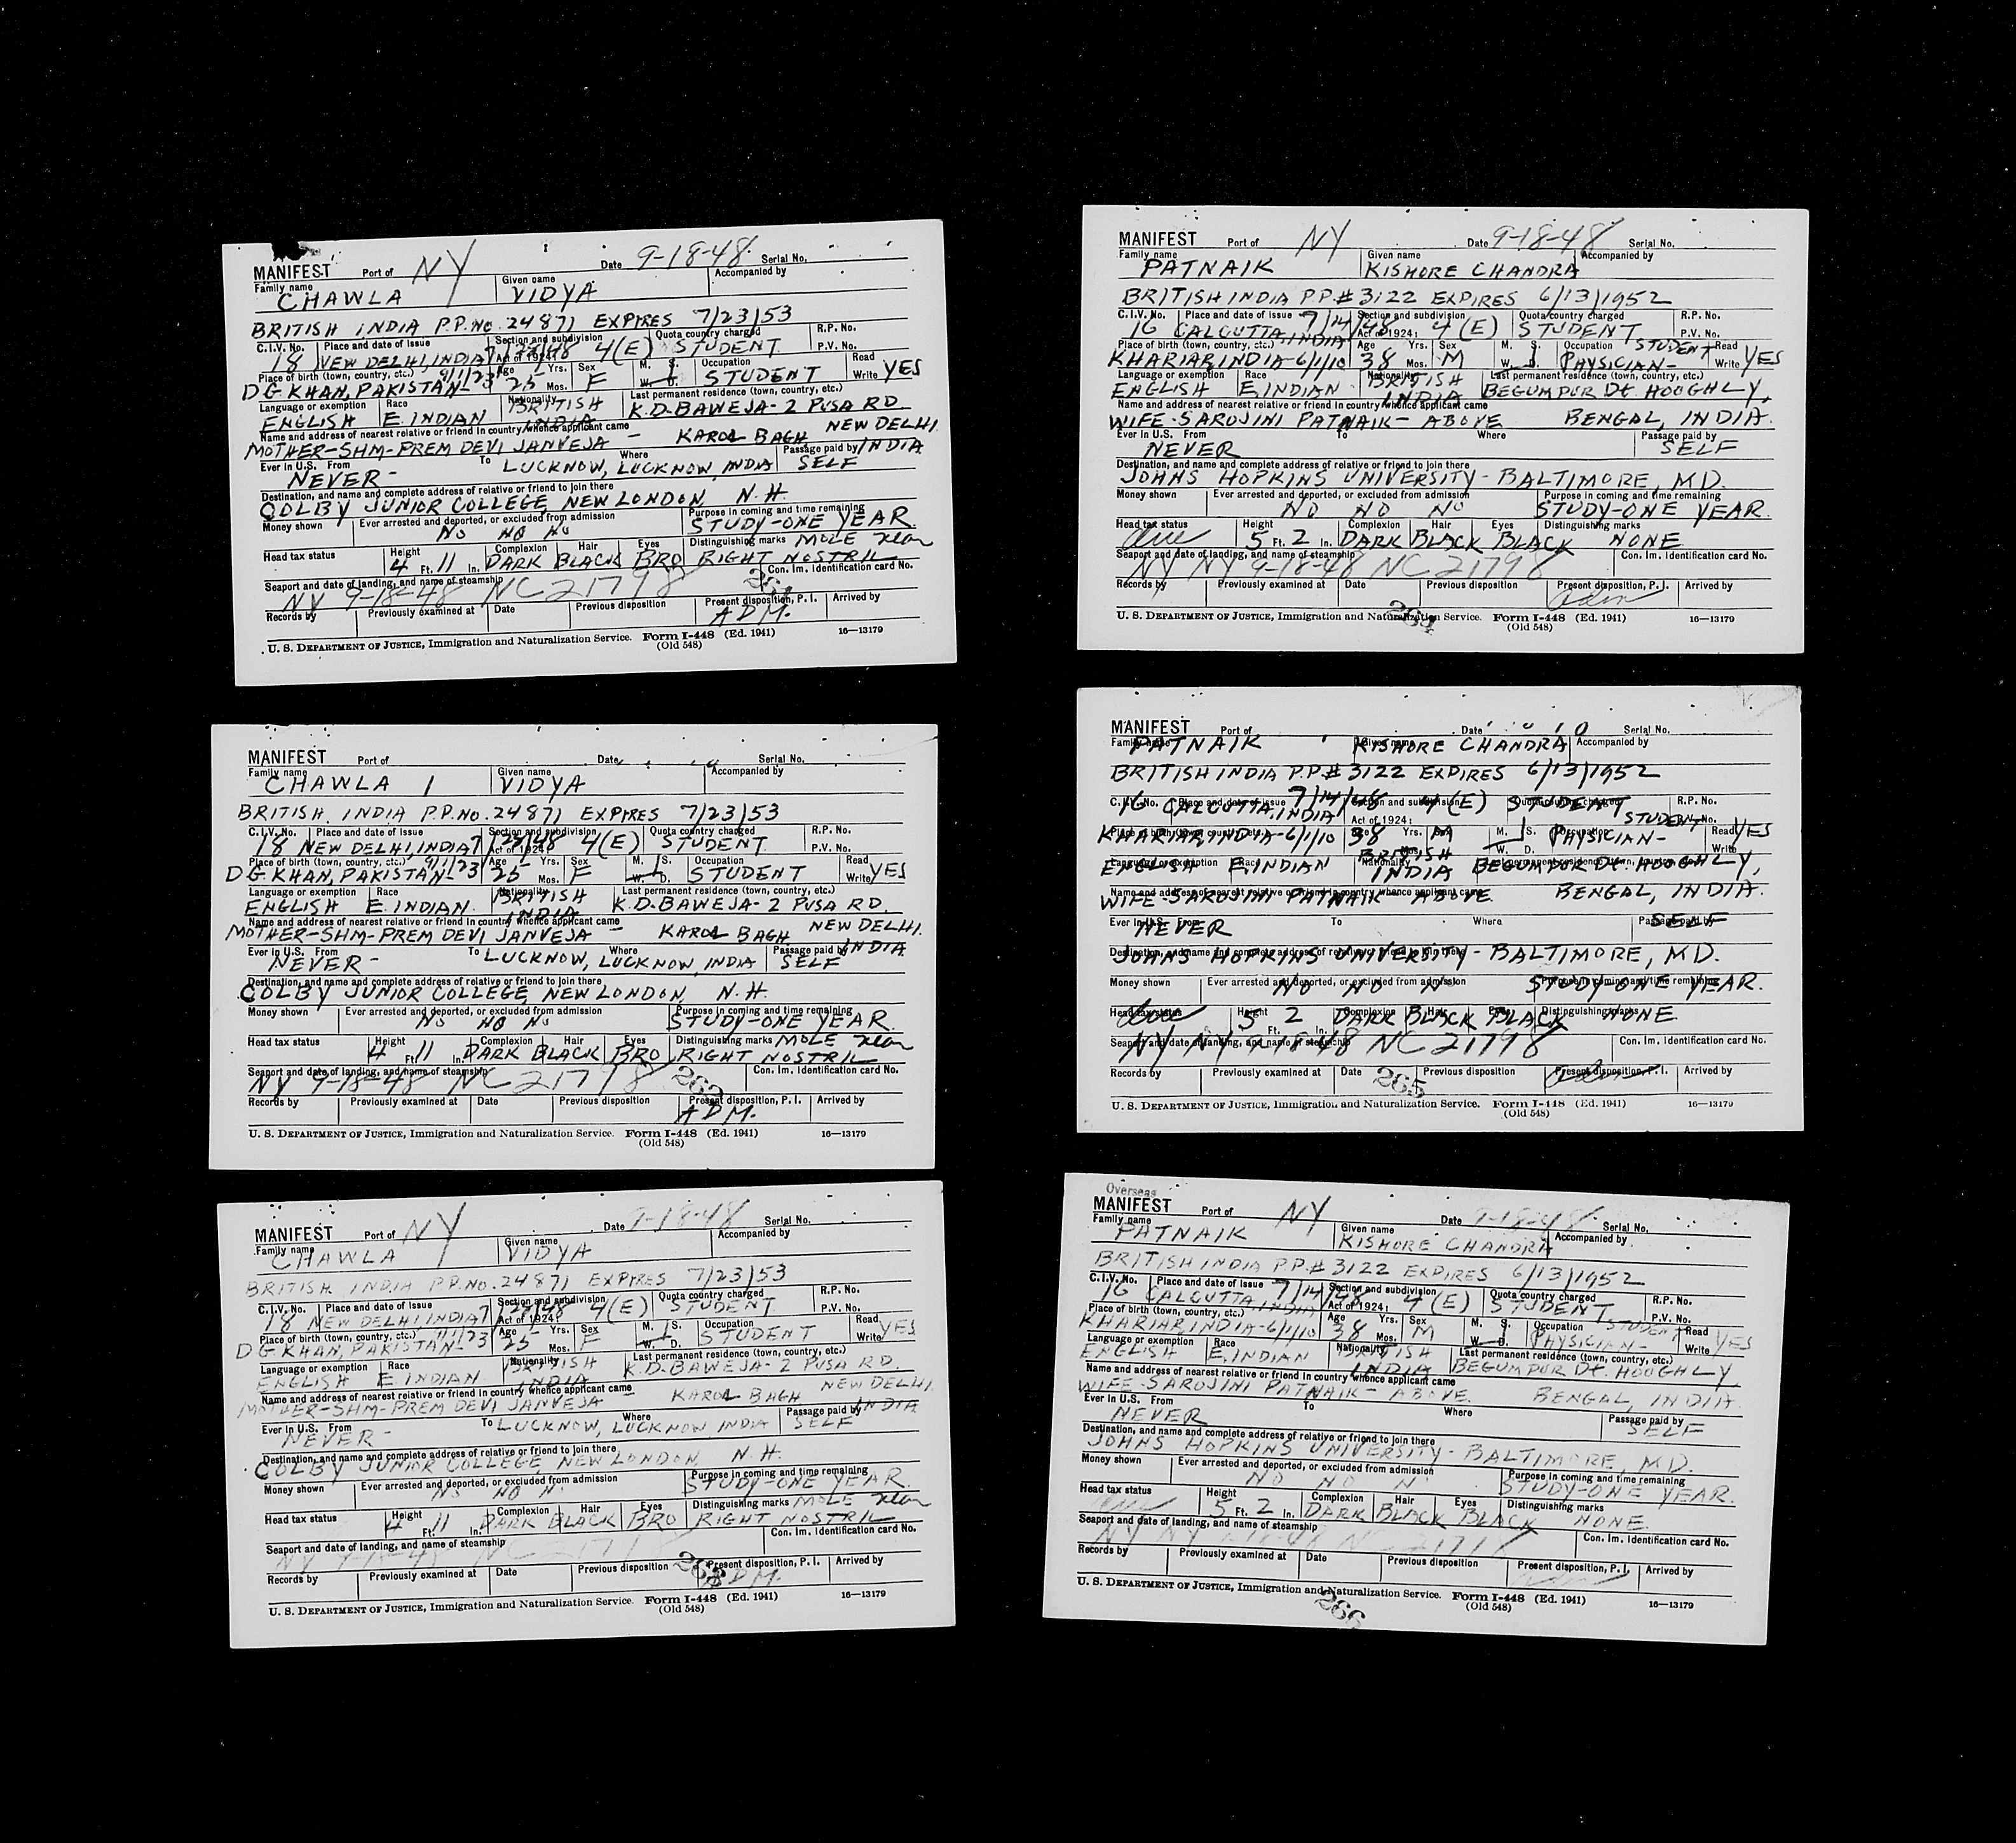 MANIFEST Port of NY Date 9-18-48 Serial No.
Family name CHAWLA Given name VIDYA Accompanied by
BRITISH INDIA P.P. No. 24871 EXPIRES 7/23/53
C.I.V. No. 18 Place and date of issue NEW DELHI, INDIA Section and subdivision Act of 1924: 4(E) Quota country charged STUDENT R.P. No. P.V. No.
Place of birth (town, country, etc.) D G KHAN, PAKISTAN 9/1/23 Age 25 Yrs. Mos. Sex F M. S. W. D. Occupation STUDENT Read Write YES
Language or exemption ENGLISH Race E. INDIAN Nationality BRITISH INDIA Last permanent residence (town, country, etc.) K.D. BAWEJA - 2 PUSA RD
Name and address of nearest relative or friend in country whence applicant came KAROL BAGH NEW DELHI INDIA
MOTHER-SHM-PREM DEVI JANVEJA -
Ever in U.S. From NEVER - To Where LUCKNOW, LUCKNOW, INDIA Passage paid by SELF
Destination, and name and complete address of relative or friend to join there
COLBY JUNIOR COLLEGE, NEW LONDON, N.H.
Money shown Ever arrested and deported, or excluded from admission NO NO NO Purpose in coming and time remaining STUDY-ONE YEAR
Head tax status Height 4 Ft. 11 In. Complexion DARK Hair BLACK Eyes BRO Distinguishing marks MOLE near RIGHT NOSTRIL
Seaport and date of landing, and name of steamship NY 9-18-48 NC 21798 Con. Im. Identification card No.
Records by Previously examined at Date Previous disposition Present disposition, P. I. ADM. Arrived by
U. S. DEPARTMENT OF JUSTICE, Immigration and Naturalization Service. Form I-448 (Ed. 1941) 16—13179
(Old 548)
MANIFEST Port of Date Serial No.
Family name CHAWLA Given name VIDYA Accompanied by
BRITISH INDIA P.P. NO. 24871 EXPIRES 7/23/53
C.I.V. No. 18 Place and date of issue NEW DELHI, INDIA Section and subdivision Act of 1924: 4(E) Quota country charged STUDENT R.P. No. P.V. No.
Place of birth (town, country, etc.) D G KHAN, PAKISTAN 9/1/23 Age 25 Yrs. Mos. Sex F M. S. W. D. Occupation STUDENT Read Write YES
Language or exemption ENGLISH Race E INDIAN Nationality BRITISH INDIA Last permanent residence (town, country, etc.) K.D. BAWEJA - 2 PUSA RD.
Name and address of nearest relative or friend in country whence applicant came KAROL BAGH NEW DELHI. INDIA
MOTHER-SHM-PREM DEVI JANVEJA -
Ever in U.S. From NEVER - To Where LUCKNOW, LUCKNOW, INDIA Passage paid by SELF
Destination, and name and complete address of relative or friend to join there
COLBY JUNIOR COLLEGE, NEW LONDON, N.H.
Money shown Ever arrested and deported, or excluded from admission NO NO NO Purpose in coming and time remaining STUDY-ONE YEAR
Head tax status Height 4 Ft. 11 In. Complexion DARK Hair BLACK Eyes BRO Distinguishing marks MOLE near RIGHT NOSTRIL
Seaport and date of landing, and name of steamship NY 9-18-48 NC 21798 Con. Im. Identification card No.
Records by Previously examined at Date Previous disposition Present disposition, P. I. ADM. Arrived by
U. S. DEPARTMENT OF JUSTICE, Immigration and Naturalization Service. Form I-448 (Ed. 1941) 16—13179
(Old 548)
MANIFEST Port of NY Date 9-18-48 Serial No.
Family name CHAWLA Given name VIDYA Accompanied by
BRITISH INDIA P.P. NO. 24871 EXPIRES 7/23/53
C.I.V. No. 18 Place and date of issue NEW DELHI INDIA Section and subdivision Act of 1924: 4(E) Quota country charged STUDENT R.P. No. P.V. No.
Place of birth (town, country, etc.) D G KHAN, PAKISTAN 9/1/23 Age 25 Yrs. Mos. Sex F M. S. W. D. Occupation STUDENT Read Write YES
Language or exemption ENGLISH Race E INDIAN Nationality BRITISH INDIA Last permanent residence (town, country, etc.) K.D. BAWEJA - 2 PUSA RD.
Name and address of nearest relative or friend in country whence applicant came KAROL BAGH NEW DELHI INDIA
MOTHER-SHM-PREM DEVI JANVEJA
Ever in U.S. From NEVER - To Where LUCKNOW, LUCKNOW INDIA Passage paid by SELF
Destination, and name and complete address of relative or friend to join there
COLBY JUNIOR COLLEGE NEW LONDON, N.H.
Money shown Ever arrested and deported, or excluded from admission NO NO Purpose in coming and time remaining STUDY-ONE YEAR
Head tax status Height 4 Ft. 11 In. Complexion DARK Hair BLACK Eyes BRO Distinguishing marks MOLE near RIGHT NOSTRIL
Seaport and date of landing, and name of steamship NY Con. Im. Identification card No.
Records by Previously examined at Date Previous disposition Present disposition, P. I. ADM. Arrived by
U. S. DEPARTMENT OF JUSTICE, Immigration and Naturalization Service. Form I-448 (Ed. 1941) 16—13179
(Old 548)
MANIFEST Port of NY Date 9-18-48 Serial No.
Family name PATNAIK Given name KISHORE CHANDRA Accompanied by
BRITISH INDIA P.P.# 3122 EXPIRES 6/13/1952
C.I.V. No. 16 Place and date of issue CALCUTTA, INDIA 7/14/48 Section and subdivision Act of 1924: 4(E) Quota country charged STUDENT R.P. No. P.V. No.
Place of birth (town, country, etc.) KHARIAR, INDIA-6/1/10 Age 38 Yrs. Mos. Sex M M. S. W. D. Occupation STUDENT PHYSICIAN- Read Write YES
Language or exemption ENGLISH Race E. INDIAN Nationality BRITISH INDIA Last permanent residence (town, country, etc.) BEGUMPUR Dt. HOOGHLY,
Name and address of nearest relative or friend in country whence applicant came
WIFE-SAROJINI PATNAIK- ABOVE BENGAL, INDIA.
Ever in U.S. From NEVER To Where Passage paid by SELF
Destination, and name and complete address of relative or friend to join there
JOHNS HOPKINS UNIVERSITY-BALTIMORE, MD.
Money shown Ever arrested and deported, or excluded from admission NO NO NO Purpose in coming and time remaining STUDY-ONE YEAR.
Head tax status due Height 5 Ft. 2 In. Complexion DARK Hair BLACK Eyes BLACK Distinguishing marks NONE
Seaport and date of landing, and name of steamship NY NY 9-18-48 NC 21798 Con. Im. Identification card No.
Records by Previously examined at Date Previous disposition Present disposition, P. I. adm Arrived by
264
U. S. DEPARTMENT OF JUSTICE, Immigration and Naturalization Service. Form I-448 (Ed. 1941) 16—13179
(Old 548)
MANIFEST Port of Date Serial No.
Family name PATNAIK Given name KISHORE CHANDRA Accompanied by
BRITISH INDIA P.P.# 3122 EXPIRES 6/13/1952
C.I.V. No. 16 Place and date of issue CALCUTTA, INDIA 7/14/48 Section and subdivision Act of 1924: 4(E) Quota country charged STUDENT R.P. No.
Place of birth (town, country, etc.) KHARIAR, INDIA-6/1/10 Age 38 Yrs. Mos. Sex M M. S. W. D. Occupation STUDENT PHYSICIAN- Read Write YES
Language or exemption ENGLISH Race E. INDIAN Nationality BRITISH INDIA Last permanent residence (town, country, etc.) BEGUMPUR Dt. HOOGHLY,
Name and address of nearest relative or friend in country whence applicant came
WIFE-SAROJINI PATNAIK- ABOVE BENGAL, INDIA.
Ever in U.S. From NEVER To Where Passage paid by SELF
Destination, and name and complete address of relative or friend to join there
JOHNS HOPKINS UNIVERSITY-BALTIMORE, MD.
Money shown Ever arrested and deported, or excluded from admission NO NO NO Purpose in coming and time remaining STUDY-ONE YEAR.
Head tax status due Height 5 Ft. 2 In. Complexion DARK Hair BLACK Eyes BLACK Distinguishing marks NONE
Seaport and date of landing, and name of steamship NY NY 9-18-48 NC 21798 Con. Im. Identification card No.
Records by Previously examined at Date 265 Previous disposition Present disposition, P. I. adm Arrived by
U. S. DEPARTMENT OF JUSTICE, Immigration and Naturalization Service. Form I-448 (Ed. 1941) 16—13179
(Old 548)
Overseas
MANIFEST Port of NY Date 9-18-48 Serial No.
Family name PATNAIK Given name KISHORE CHANDRA Accompanied by
BRITISH INDIA P.P.# 3122 EXPIRES 6/13/1952
C.I.V. No. 16 Place and date of issue CALCUTTA, INDIA 7/14/48 Section and subdivision Act of 1924: 4(E) Quota country charged STUDENT R.P. No. P.V. No.
Place of birth (town, country, etc.) KHARIAR, INDIA-6/1/10 Age 38 Yrs. Mos. Sex M M. S. W. D. Occupation STUDENT PHYSICIAN- Read Write YES
Language or exemption ENGLISH Race E. INDIAN Nationality BRITISH INDIA Last permanent residence (town, country, etc.) BEGUMPUR Dt. HOOGHLY,
Name and address of nearest relative or friend in country whence applicant came
WIFE-SAROJINI PATNAIK- ABOVE. BENGAL, INDIA.
Ever in U.S. From NEVER To Where Passage paid by SELF
Destination, and name and complete address of relative or friend to join there
JOHNS HOPKINS UNIVERSITY-BALTIMORE, MD.
Money shown Ever arrested and deported, or excluded from admission NO NO Purpose in coming and time remaining STUDY-ONE YEAR.
Head tax status due Height 5 Ft. 2 In. Complexion DARK Hair BLACK Eyes BLACK Distinguishing marks NONE.
Seaport and date of landing, and name of steamship NY NY Con. Im. Identification card No.
Records by Previously examined at Date Previous disposition Present disposition, P. I. Arrived by
U. S. DEPARTMENT OF JUSTICE, Immigration and Naturalization Service. Form I-448 (Ed. 1941) 16—13179
(Old 548)
266